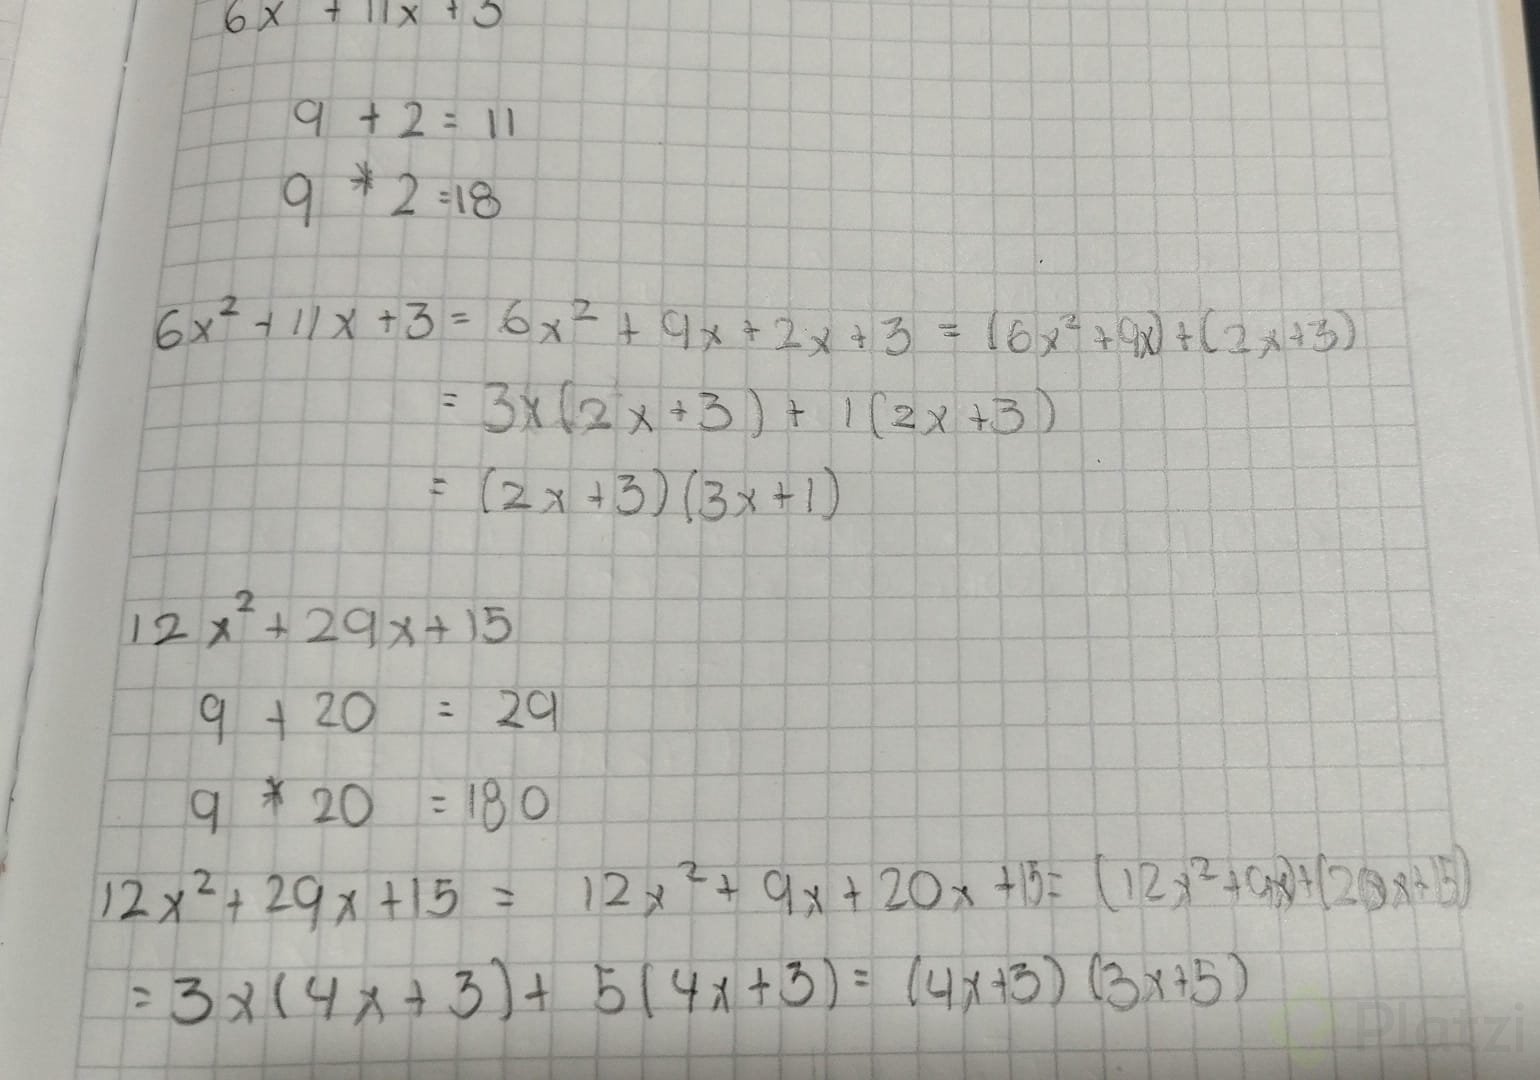 6x + 11x + 3
9 + 2 = 11
9 * 2 = 18
6x² + 11x + 3 = 6x² + 9x + 2x + 3 = (6x² + 9x) + (2x + 3)
= 3x(2x + 3) + 1(2x + 3)
= (2x + 3)(3x + 1)
12x² + 29x + 15
9 + 20 = 29
9 * 20 = 180
12x² + 29x + 15 = 12x² + 9x + 20x + 15 = (12x² + 9x) + (20x + 15)
= 3x(4x + 3) + 5(4x + 3) = (4x + 3)(3x + 5)
Platzi